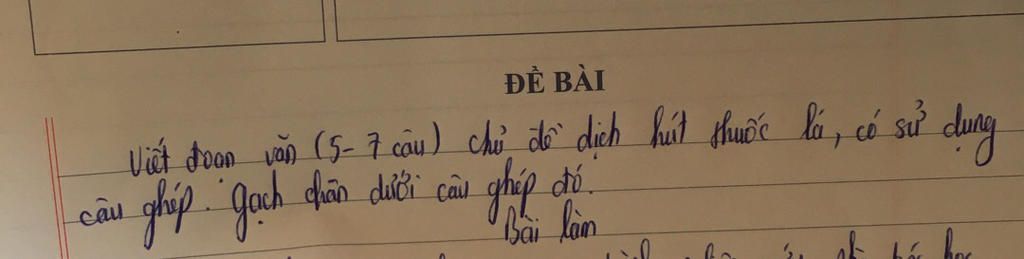 ĐỀ BÀI
Viết đoạn văn (5-7 câu) chủ đề dịch hút thuốc lá, có sử dụng
câu ghép. gạch chân dưới câu ghép đó.
Bài làm